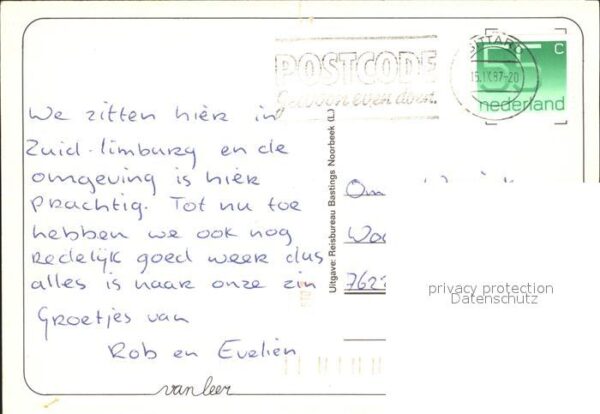 POSTCODE
Gewoon even doen.
SITTARD
15.IX.87-20
55 C
nederland
We zitten hier in
Zuid-limburg en de
omgeving is hier
prachtig. Tot nu toe
hebben we ook nog
redelijk goed weer dus
alles is naar onze zin
Groetjes van
Rob en Evelien
van leer
Uitgave: Reisbureau Bastings Noorbeek (L.)
Om
Wo
762
privacy protection
Datenschutz